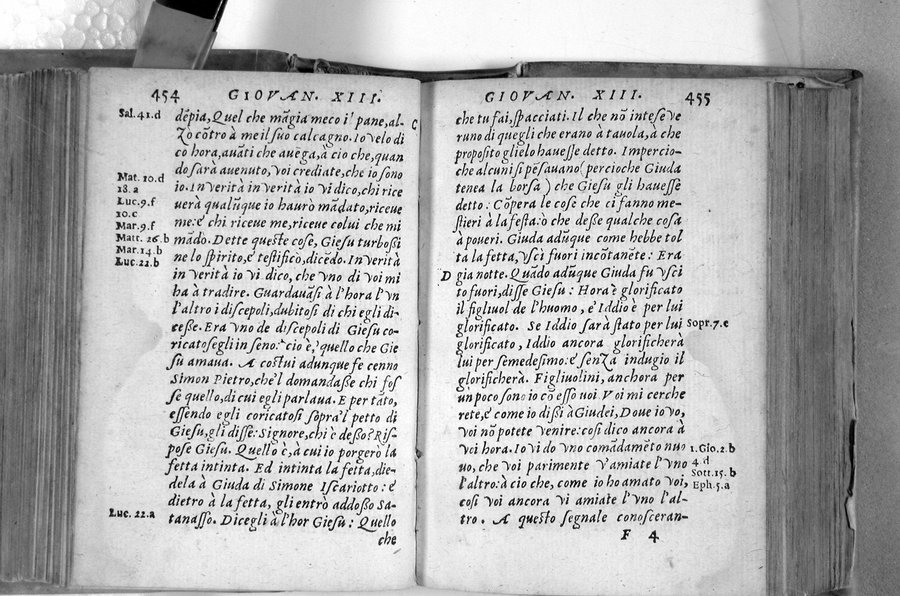 454 GIOVAN. XIII.
Sal. 41. d
Mat. 10. d
18. a
Luc. 9. f
10. c.
Mar. 9. f
Matt. 26. b
Mar. 14. b
Luc. 22. b
Luc. 22. a
dẽpia, Quel che mãgia meco i' pane, al-
Zò cõtro à me il suo calcagno. Io velo di
co hora, auãti che auẽga, à cio che, quan
do sarà auenuto, voi crediate, che io sono
io. In verità in verità io vi dico, chi rice
uerà qualũque io haurò mãdato, riceue
me: e' chi riceue me, riceue colui che mi
mãdo. Dette queste cose, Giesu turbossi
ne lo spirito, e' testificò, dicẽdo. In verità
in verità io vi dico, che vno di voi mi
ha à tradire. Guardauãsi à l'hora l'vn
l'altro i discepoli, dubitosi di chi egli di-
cesse. Era vno de discepoli di Giesu co-
ricatosegli in seno: cio è, quello che Gie
su amaua. A costui adunque fe cenno
Simon Pietro, che'l domandasse chi fos
se quello, di cui egli parlaua. E per tãto,
essendo egli coricatosi sopra'l petto di
Giesu, gli disse: Signore, chi è desso? Ris-
pose Giesu. Quello è, à cui io porgerò la
fetta intinta. Ed intinta la fetta, die-
dela à Giuda di Simone Iscariotto: e'
dietro à la fetta, gli entrò addosso Sa-
tanasso. Dicegli à l'hor Giesu: Quello
che
C
GIOVAN. XIII. 455
che tu fai, spacciati. Il che nõ intese ve
runo di quegli che erano à tauola, à che
proposito glielo hauesse detto. Impercio-
che alcuni si pẽsauano (percioche Giuda
tenea la borsa) che Giesu gli hauesse
detto: Cõpera le cose che ci fanno me-
stieri à la festa: ò che desse qualche cosa
à poueri. Giuda adũque come hebbe tol
ta la fetta, vscì fuori incõtanẽte: Era
gia notte. Quãdo adũque Giuda fu vsci
to fuori, disse Giesu: Hora è glorificato
il figliuol de l'huomo, e' Iddio è per lui
glorificato. Se Iddio sarà stato per lui
glorificato, Iddio ancora glorificherà
lui per semedesimo: e' senza indugio il
glorificherà. Figliuolini, anchora per
un poco sono io cõ esso uoi. Voi mi cerche
rete, e' come io dissi à Giudei, Doue io vo,
voi nõ potete venire: così dico ancora à
voi hora. Io vi do vno comãdamẽto nuo
uo, che voi parimente v'amiate l'vno
l'altro: à cio che, come io ho amato voi,
così voi ancora vi amiate l'vno l'al-
tro. A questo segnale conosceran-
F 4
D
Sopr. 7. e
1. Gio. 2. b
4. d
Sott. 15. b
Eph. 5. a